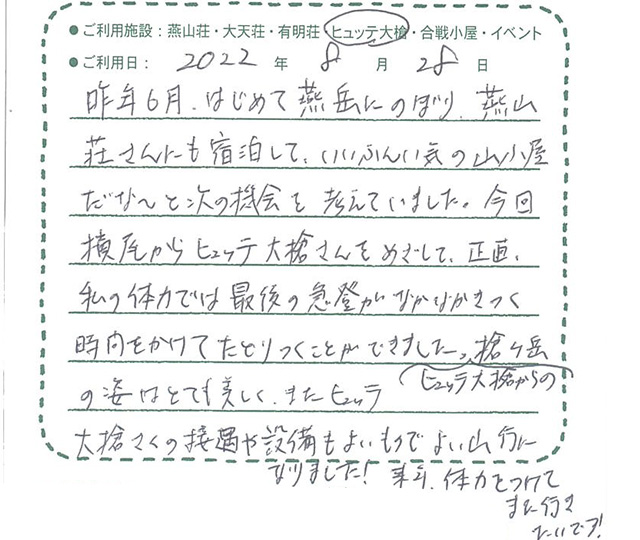 ●ご利用施設：燕山荘・大天荘・有明荘・ヒュッテ大槍・合戦小屋・イベント
●ご利用日： 2022 年 8 月 28 日
昨年6月、はじめて燕岳にのぼり、燕山
荘さんにも宿泊して、いいふんい気の山小屋
だな〜と次の機会を考えていました。今回
横尾からヒュッテ大槍さんをめざして、正直、
私の体力では最後の急登がなかなかきつく
時間をかけてたどりつくことができました。槍ヶ岳
ヒュッテ大槍からの
の姿はとても美しく、またヒュッテ
大槍さんの接遇や設備もよいものでよい山行に
なりました！来年、体力をつけて
また行き
たいです！